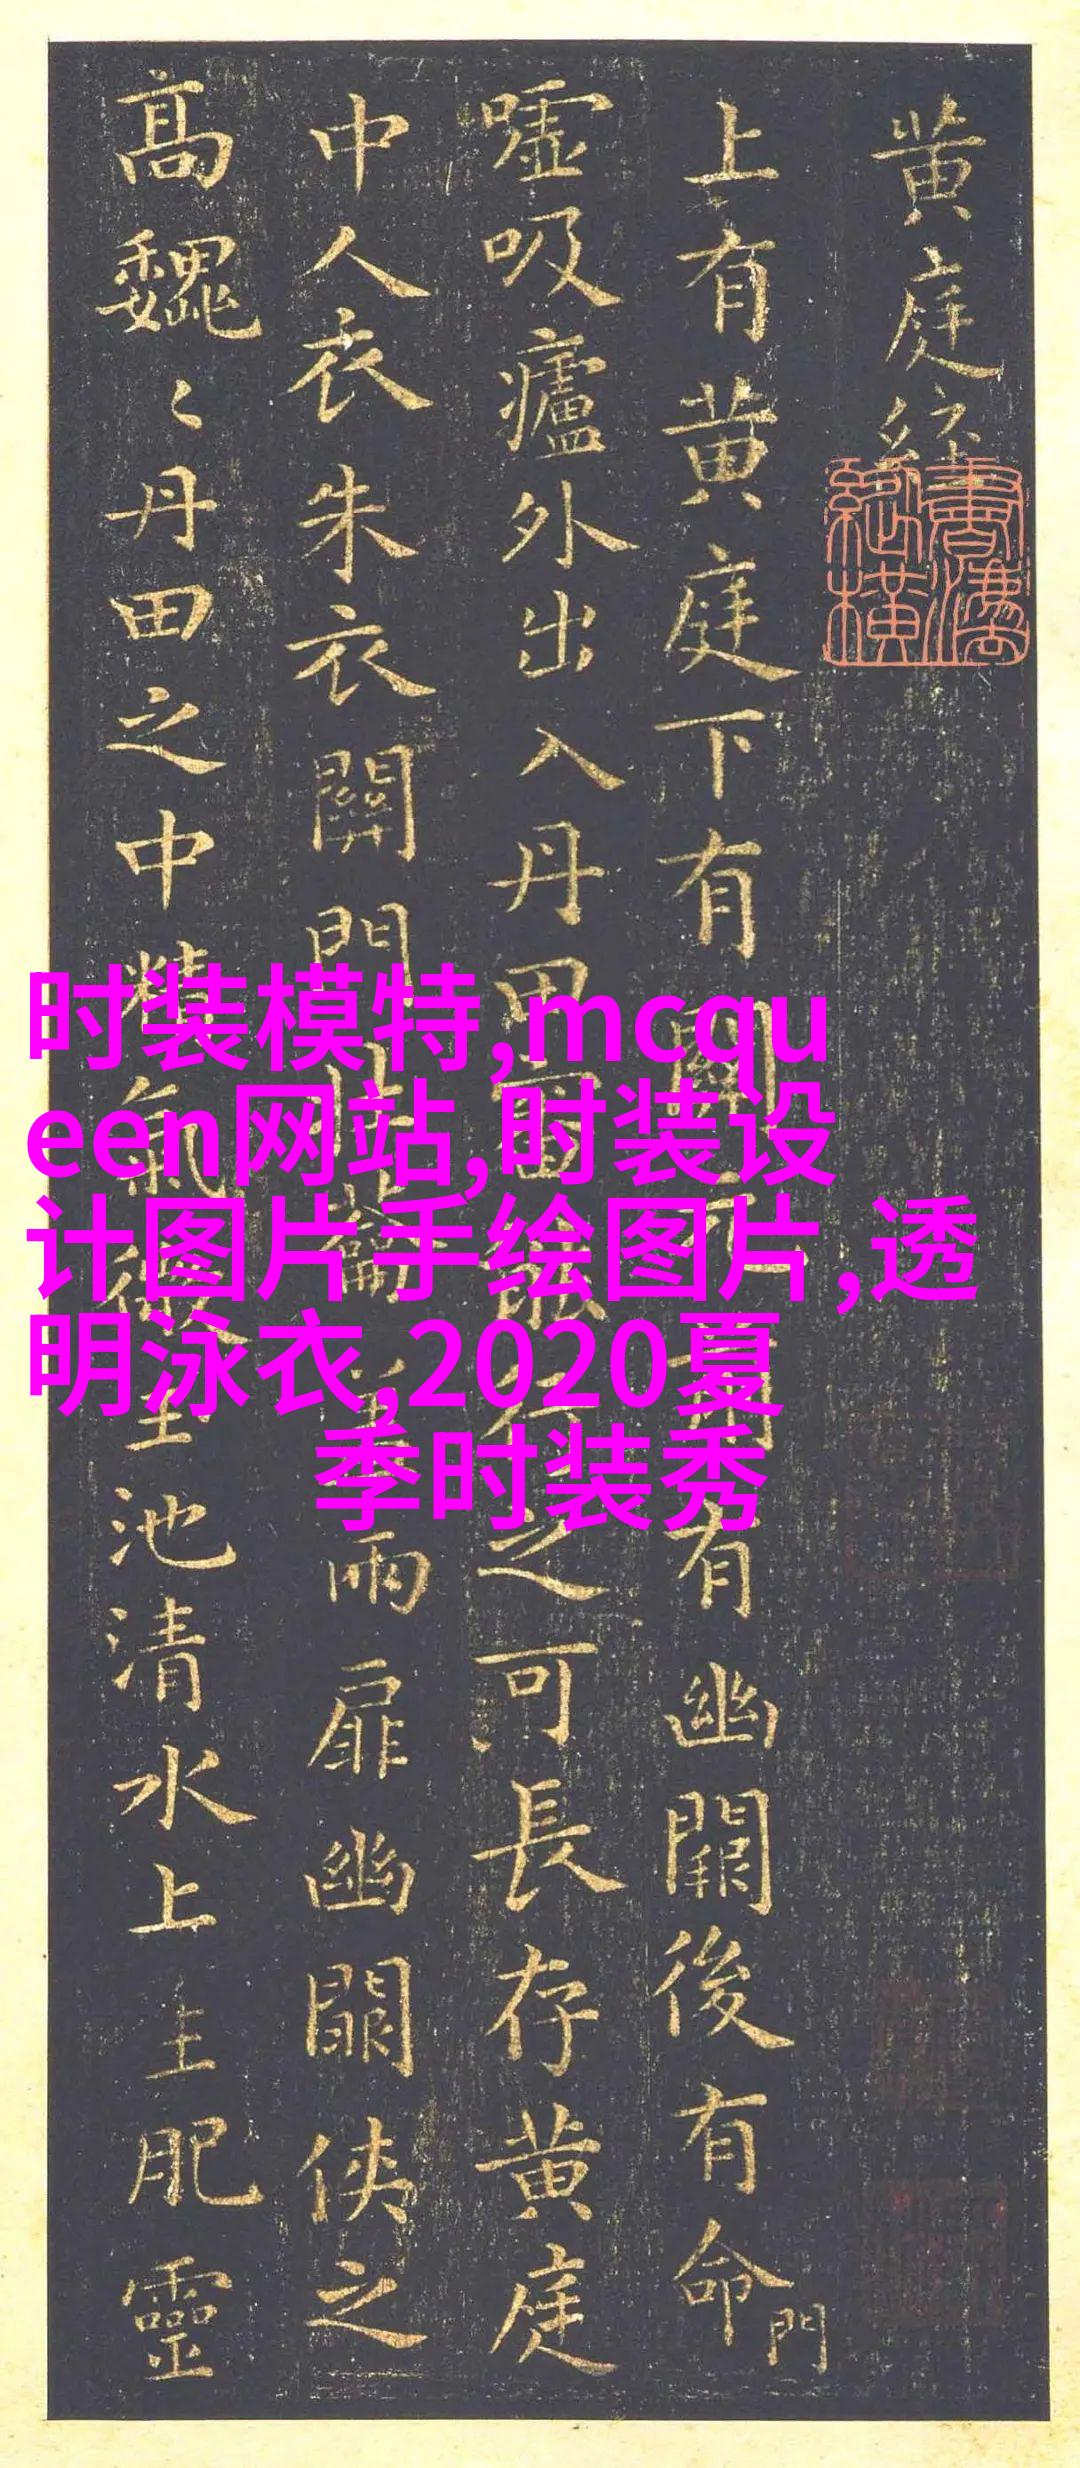 黄庭经
上有黄庭下有關
有幽闕後有命門
嘘吸廬外出入丹田
行之可長存黄庭
中人衣朱衣關門
兩扉幽闕侠之
高魏〻丹田之中精氣微
池清水上生肥靈
时装模特,mcqu
een网站,时装设
计图片手绘图片,透
明泳衣,2020夏
季时装秀